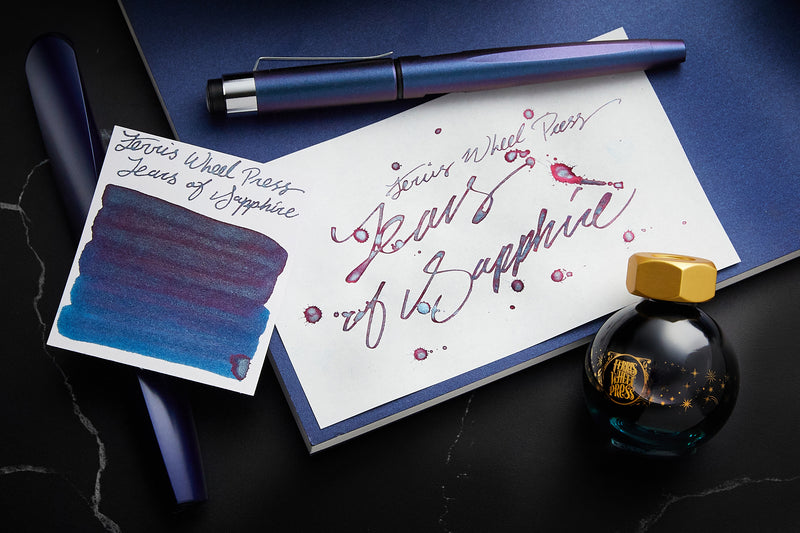 Ferris Wheel Press
Tears of Sapphire
Ferris Wheel Press
Tears
of Sapphire
FERRIS
WHEEL
PRESS